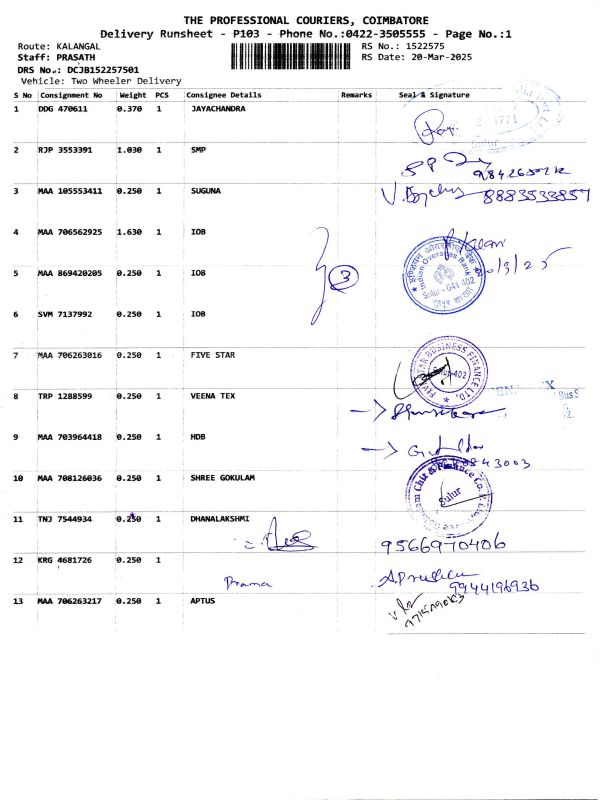 THE PROFESSIONAL COURIERS, COIMBATORE
Delivery Runsheet - P103 - Phone No.:0422-3505555 - Page No.:1
Route: KALANGAL RS No.: 1522575
Staff: PRASATH RS Date: 20-Mar-2025
DRS No.: DCJB152257501
Vehicle: Two Wheeler Delivery
S No Consignment No Weight PCS Consignee Details Remarks Seal & Signature
1 DDG 470611 0.370 1 JAYACHANDRA
1771
Sulur
2 RJP 3553391 1.030 1 SMP
3 MAA 105553411 0.250 1 SUGUNA
8883533857
4 MAA 706562925 1.630 1 IOB
Indian Overseas Bank
5 MAA 869420205 0.250 1 IOB
3
Sulur - 641 402
6 SVM 7137992 0.250 1 IOB
7 MAA 706263016 0.250 1 FIVE STAR
STAR BUSINESS FINANCE LTD.
8 TRP 1288599 0.250 1 VEENA TEX
9 MAA 703964418 0.250 1 HDB
10 MAA 708126036 0.250 1 SHREE GOKULAM
Chit & Finance Co.
Sulur
11 TNJ 7544934 0.250 1 DHANALAKSHMI
9566970406
12 KRG 4681726 0.250 1
9944196936
13 MAA 706263217 0.250 1 APTUS